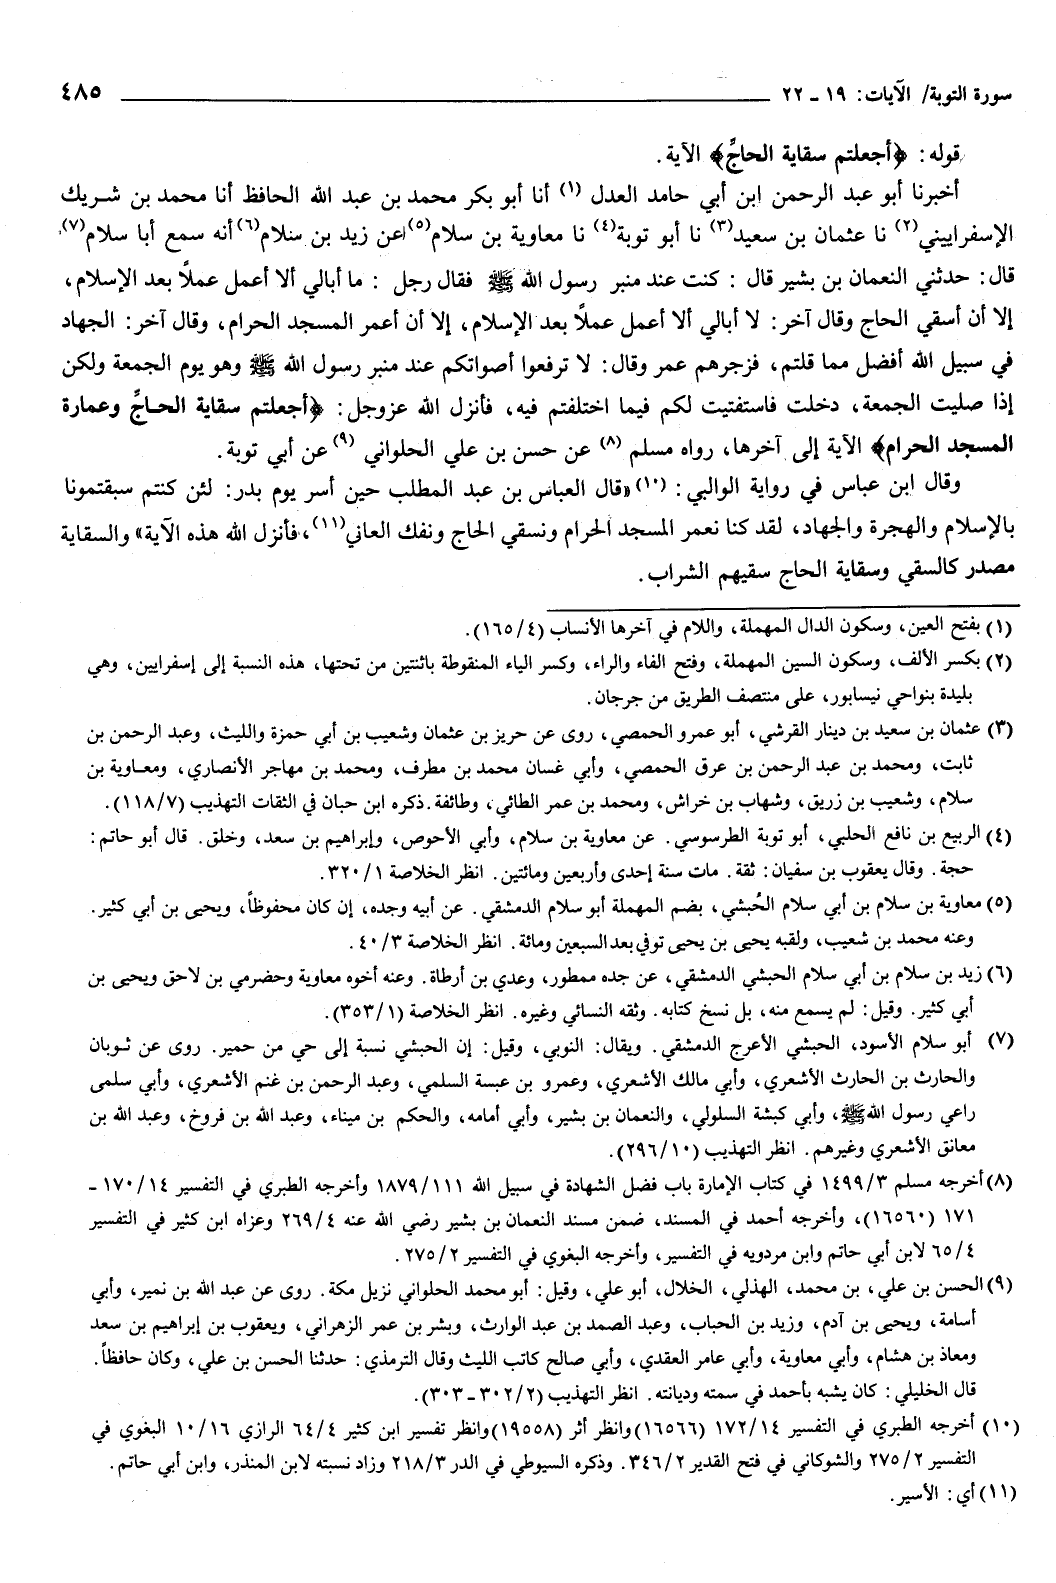 سورة التوبة/ الآيات: ١٩ ـ ٢٢ ٤٨٥
قوله: ﴿أجعلتم سقاية الحاجِّ﴾ الآية.
أخبرنا أبو عبد الرحمن ابن أبي حامد العدل (١) أنا أبو بكر محمد بن عبد الله الحافظ أنا محمد بن شريك
الإسفراييني(٢) نا عثمان بن سعيد(٣) نا أبو توبة(٤) نا معاوية بن سلام(٥) عن زيد بن سلام(٦) أنه سمع أبا سلام(٧)
قال: حدثني النعمان بن بشير قال: كنت عند منبر رسول الله ﷺ فقال رجل: ما أبالي ألا أعمل عملاً بعد الإسلام،
إلا أن أسقي الحاج وقال آخر: لا أبالي ألا أعمل عملاً بعد الإسلام، إلا أن أعمر المسجد الحرام، وقال آخر: الجهاد
في سبيل الله أفضل مما قلتم، فزجرهم عمر وقال: لا ترفعوا أصواتكم عند منبر رسول الله ﷺ وهو يوم الجمعة ولكن
إذا صليت الجمعة، دخلت فاستفتيت لكم فيما اختلفتم فيه، فأنزل الله عزوجل: ﴿أجعلتم سقاية الحاجِّ وعمارة
المسجد الحرام﴾ الآية إلى آخرها، رواه مسلم (٨) عن حسن بن علي الحلواني (٩) عن أبي توبة.
وقال ابن عباس في رواية الوالبي: (١٠)«قال العباس بن عبد المطلب حين أسر يوم بدر: لئن كنتم سبقتمونا
بالإسلام والهجرة والجهاد، لقد كنا نعمر المسجد الحرام ونسقي الحاج ونفك العاني(١١)، فأنزل الله هذه الآية» والسقاية
مصدر كالسقي وسقاية الحاج سقيهم الشراب.
(١) بفتح العين، وسكون الدال المهملة، واللام في آخرها الأنساب (٤/ ١٦٥).
(٢) بكسر الألف، وسكون السين المهملة، وفتح الفاء والراء، وكسر الياء المنقوطة باثنتين من تحتها، هذه النسبة إلى إسفرايين، وهي
بليدة بنواحي نيسابور، على منتصف الطريق من جرجان.
(٣) عثمان بن سعيد بن دينار القرشي، أبو عمرو الحمصي، روى عن حريز بن عثمان وشعيب بن أبي حمزة والليث، وعبد الرحمن بن
ثابت، ومحمد بن عبد الرحمن بن عرق الحمصي، وأبي غسان محمد بن مطرف، ومحمد بن مهاجر الأنصاري، ومعاوية بن
سلام، وشعيب بن زريق، وشهاب بن خراش، ومحمد بن عمر الطائي، وطائفة. ذكره ابن حبان في الثقات التهذيب (٧/ ١١٨).
(٤) الربيع بن نافع الحلبي، أبو توبة الطرسوسي. عن معاوية بن سلام، وأبي الأحوص، وإبراهيم بن سعد، وخلق. قال أبو حاتم:
حجة. وقال يعقوب بن سفيان: ثقة. مات سنة إحدى وأربعين ومائتين. انظر الخلاصة ١/ ٣٢٠.
(٥) معاوية بن سلام بن أبي سلام الحُبشي، بضم المهملة أبو سلام الدمشقي. عن أبيه وجده، إن كان محفوظاً، ويحيى بن أبي كثير.
وعنه محمد بن شعيب، ولقبه يحيى بن يحيى توفي بعد السبعين ومائة. انظر الخلاصة ٣/ ٤٠.
(٦) زيد بن سلام بن أبي سلام الحبشي الدمشقي، عن جده ممطور، وعدي بن أرطاة. وعنه أخوه معاوية وحضرمي بن لاحق ويحيى بن
أبي كثير. وقيل: لم يسمع منه، بل نسخ كتابه. وثقه النسائي وغيره. انظر الخلاصة (١/ ٣٥٣).
(٧) أبو سلام الأسود، الحبشي الأعرج الدمشقي. ويقال: النوبي، وقيل: إن الحبشي نسبة إلى حي من حمير. روى عن ثوبان
والحارث بن الحارث الأشعري، وأبي مالك الأشعري، وعمرو بن عبسة السلمي، وعبد الرحمن بن غنم الأشعري، وأبي سلمى
راعي رسول الله ﷺ، وأبي كبشة السلولي، والنعمان بن بشير، وأبي أمامه، والحكم بن ميناء، وعبد الله بن فروخ، وعبد الله بن
معانق الأشعري وغيرهم. انظر التهذيب (١٠/ ٢٩٦).
(٨) أخرجه مسلم ٣/ ١٤٩٩ في كتاب الإمارة باب فضل الشهادة في سبيل الله ١١١/ ١٨٧٩ وأخرجه الطبري في التفسير ١٤/ ١٧٠ ـ
١٧١ (١٦٥٦٠)، وأخرجه أحمد في المسند، ضمن مسند النعمان بن بشير رضي الله عنه ٤/ ٢٦٩ وعزاه ابن كثير في التفسير
٤/ ٦٥ لابن أبي حاتم وابن مردويه في التفسير، وأخرجه البغوي في التفسير ٢/ ٢٧٥.
(٩) الحسن بن علي، بن محمد، الهذلي، الخلال، أبو علي، وقيل: أبو محمد الحلواني نزيل مكة. روى عن عبد الله بن نمير، وأبي
أسامة، ويحيى بن آدم، وزيد بن الحباب، وعبد الصمد بن عبد الوارث، وبشر بن عمر الزهراني، ويعقوب بن إبراهيم بن سعد
ومعاذ بن هشام، وأبي معاوية، وأبي عامر العقدي، وأبي صالح كاتب الليث وقال الترمذي: حدثنا الحسن بن علي، وكان حافظاً.
قال الخليلي: كان يشبه بأحمد في سمته وديانته. انظر التهذيب (٢/ ٣٠٢ ـ ٣٠٣).
(١٠) أخرجه الطبري في التفسير ١٤/ ١٧٢ (١٦٥٦٦) وانظر أثر (١٩٥٥٨) وانظر تفسير ابن كثير ٤/ ٦٤ الرازي ١٦/ ١٠ البغوي في
التفسير ٢/ ٢٧٥ والشوكاني في فتح القدير ٢/ ٣٤٦. وذكره السيوطي في الدر ٣/ ٢١٨ وزاد نسبته لابن المنذر، وابن أبي حاتم.
(١١) أي: الأسير.